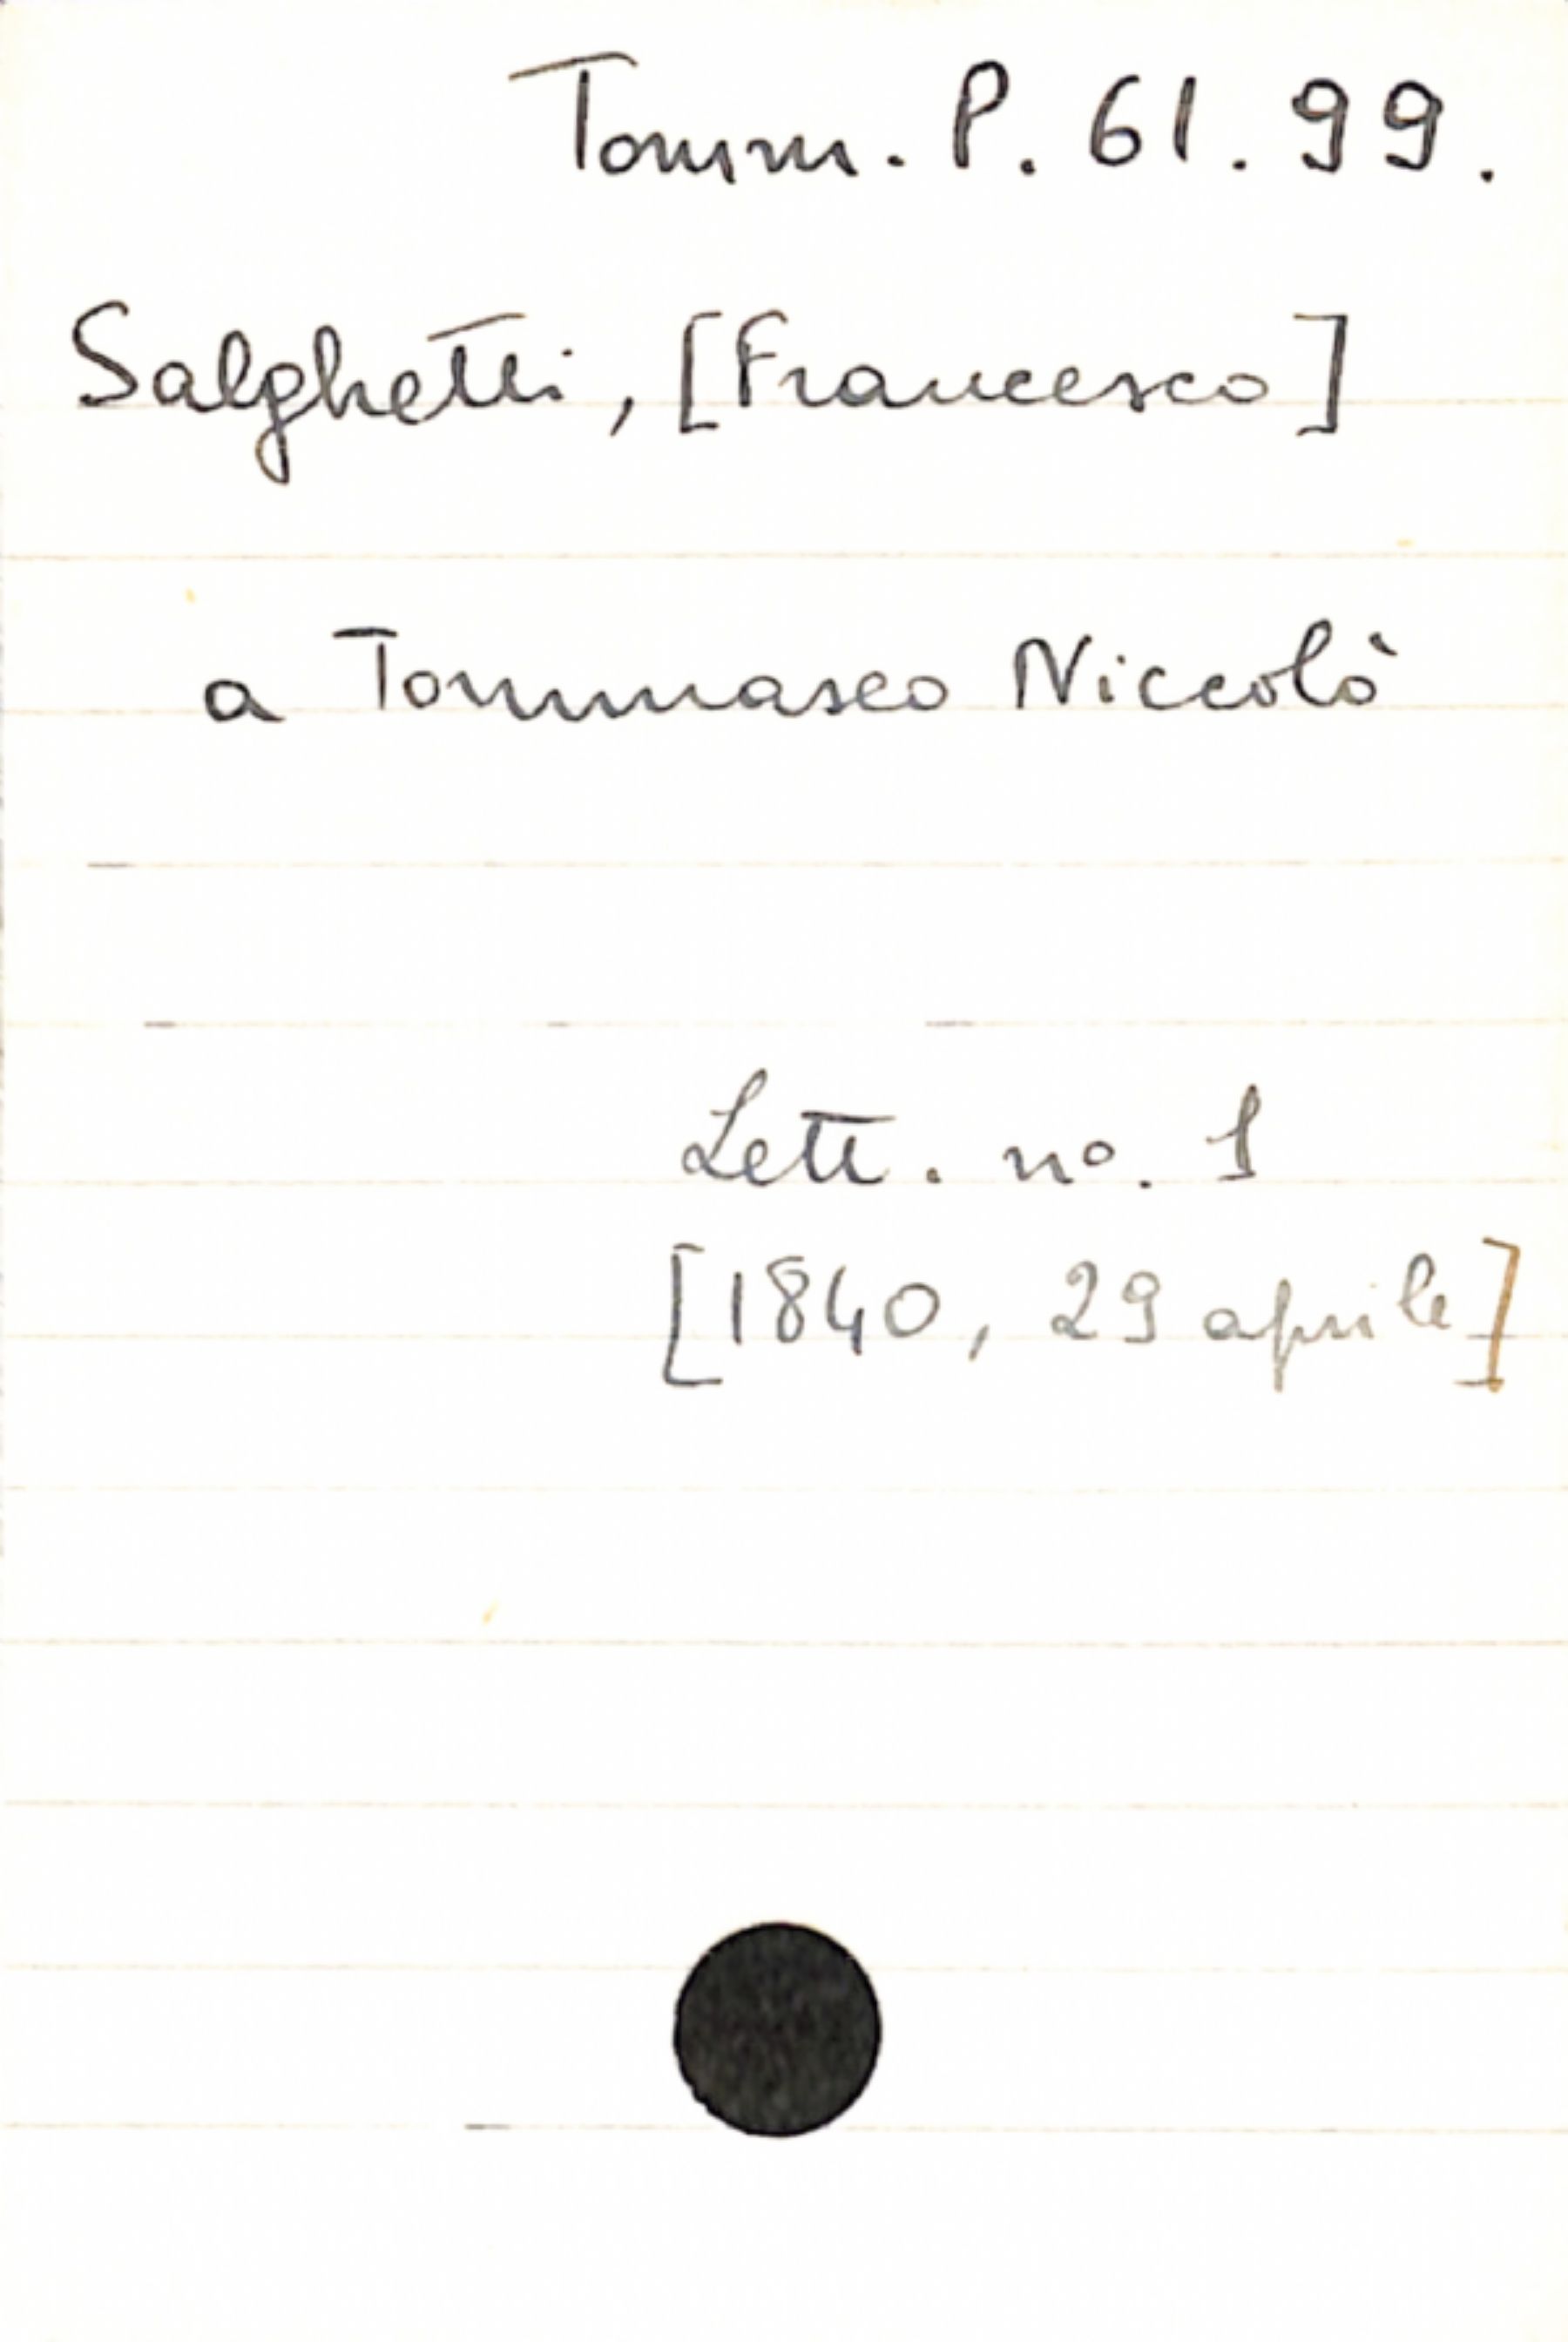 Tomm. P. 61. 99.
Salghetti, [Francesco]
a Tommaseo Niccolò
Lett. no. 1
[1840, 29 aprile]